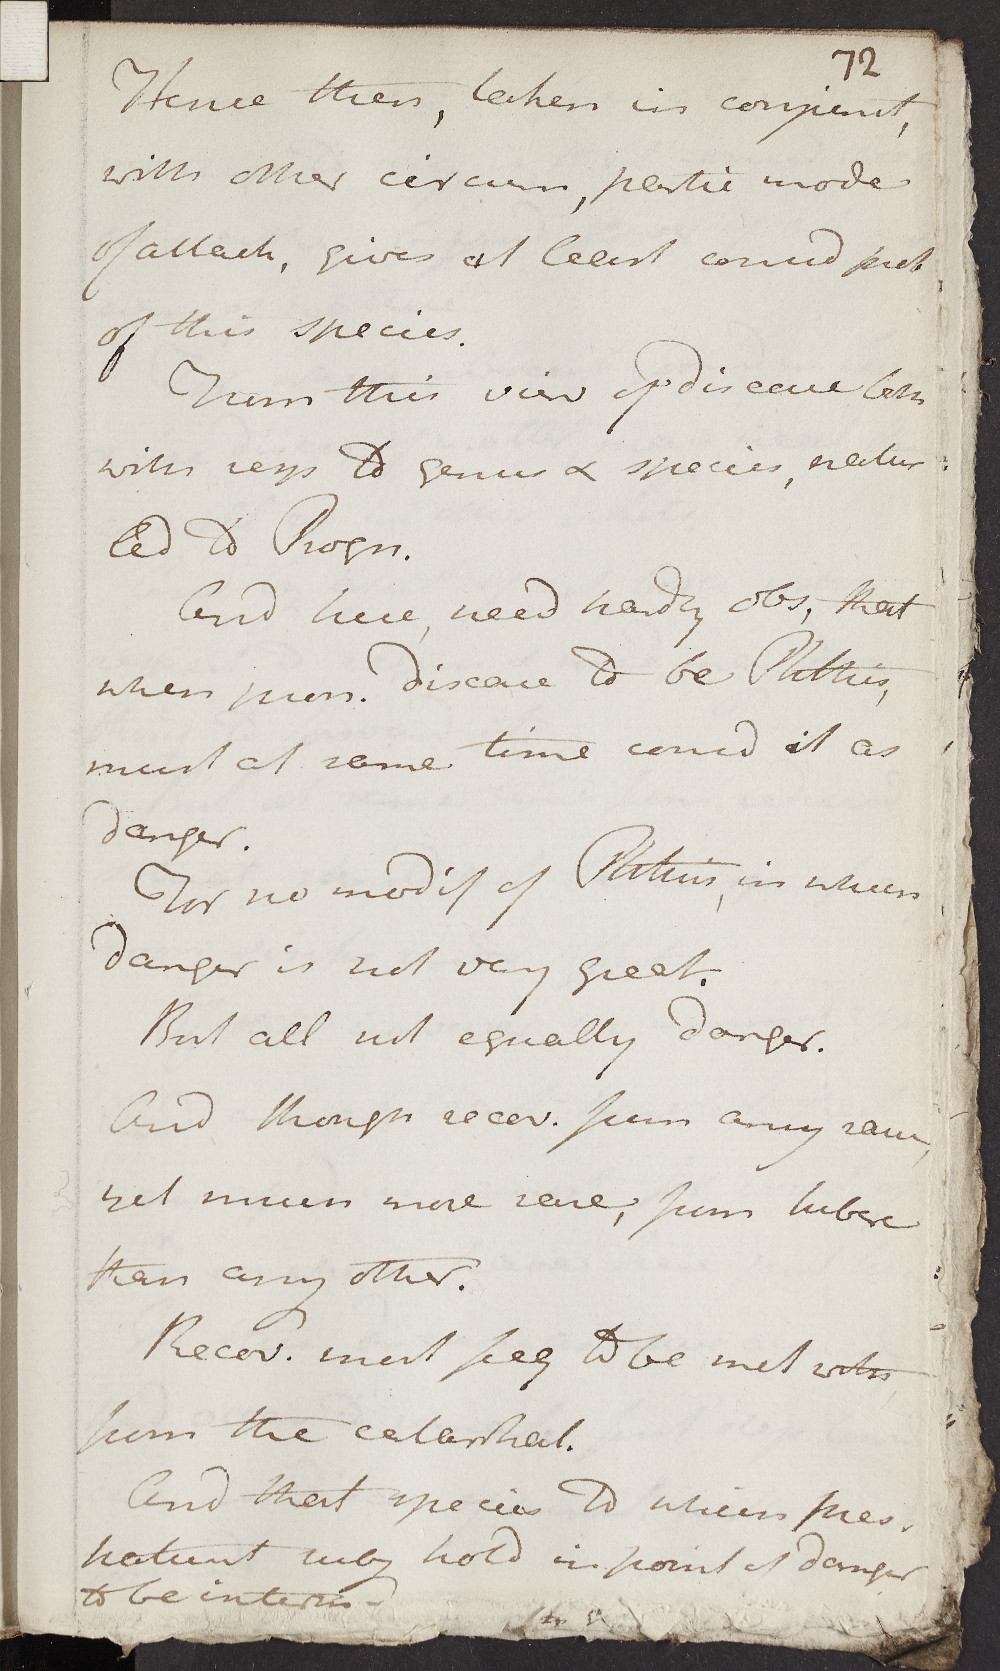 72
Hence then, taken in conjunct,
with other circum, partic mode
of attack, gives at least consid
of this species.
From this view of disease both
with resp to genus & species, natur
led to Progn.
And here, need hardly obs, that
when pron. disease to be Phthis,
must at same time consid it as
danger.
For no modif of Phthis, in which
danger is not very great.
But all not equally danger.
And though recov. from any rare,
yet much more rare, from tuberc
than any other.
Recov. most freq to be met with
from the catarrhal.
And that species to which pres.
patient hold in point of danger
to be interm